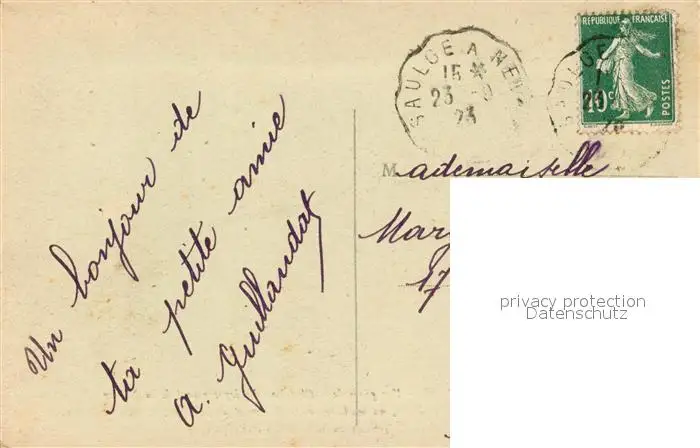 Un bonjour de
ta petite amie
A. Guillaudat
SAULGE A NEU
15 *
23 -9
23
SAULGE
REPUBLIQUE FRANÇAISE
10c
POSTES
Mademoiselle
Mar
17
privacy protection
Datenschutz